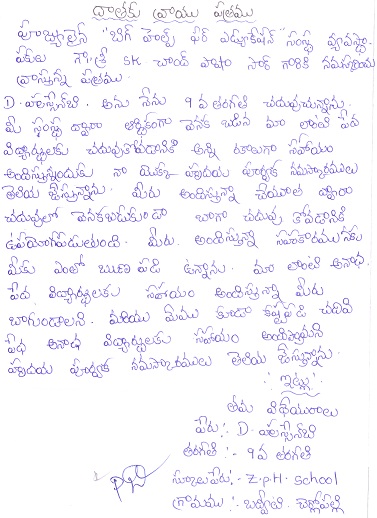 దాతకు వ్రాయు పత్రము
పూజ్యులైన "బిగ్ హెల్ప్ ఫర్ ఎడ్యుకేషన్ సంస్థ వ్యవస్థా-
పకులు గౌ|| శ్రీ SK చాంద్ పాషా సార్ గారికి నమస్కరించి
వ్రాస్తున్న పత్రము.
D. అను నేను 9 వ తరగతి చదువుచున్నాను.
మీ సంస్థ ద్వారా ఆర్థికంగా వెనక బడిన మా లాంటి పేద
విద్యార్థులకు చదువుకోవడానికి అన్ని రకాలుగా సహాయం
అందిస్తున్నందుకు నా యొక్క హృదయ పూర్వక నమస్కారములు
తెలియ చేస్తున్నాను. మీరు అందిస్తున్న చేయూత ద్వారా
చదువులో వెనకబడకుండా బాగా చదువు కోవడానికి
ఉపయోగపడుతుంది. మీరు అందిస్తున్న సహకారమునకు
మీకు ఎంతో ఋణ పడి ఉన్నాను. మా లాంటి అనాధ
పేద విద్యార్థులకు సహాయం అందిస్తున్న మీరు
బాగుండాలని. మరియు మేము కూడా కష్టపడి చదివి
పేధ అనాధ విద్యార్థులకు సహాయం అందిస్తామని
హృదయ పూర్వక నమస్కారములు తెలియ చేస్తున్నాను.
ఇట్లు
తమ విధేయురాలు
పేరు :- D.
తరగతి :- 9 వ తరగతి
స్కూలుపేరు :- Z.P.H. School
గ్రామము :- చెర్లోపల్లి